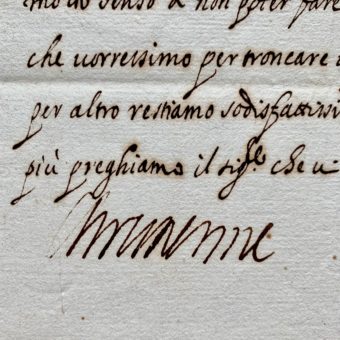 senso à non poter fare
che uorressimo per troncare
per altro restiamo sodisfattissi
più preghiamo il sig.re che u